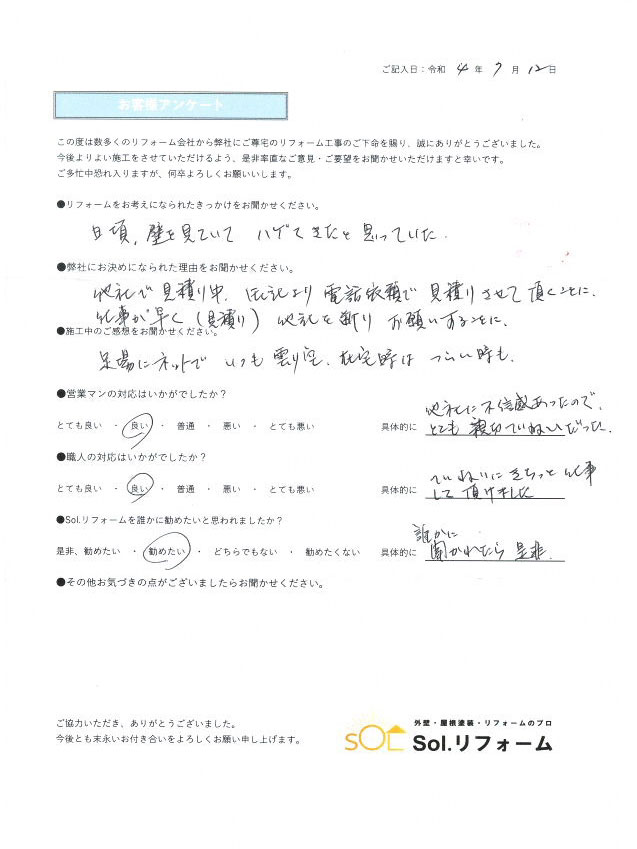 ご記入日：令和 4 年 7 月 12 日
お客様アンケート
この度は数多くのリフォーム会社から弊社にご尊宅のリフォーム工事のご下命を賜り、誠にありがとうございました。
今後よりよい施工をさせていただけるよう、是非率直なご意見・ご要望をお聞かせいただけますと幸いです。
ご多忙中恐れ入りますが、何卒よろしくお願いいします。
●リフォームをお考えになられたきっかけをお聞かせください。
日頃、壁を見ていて ハゲてきたと思っていた.
●弊社にお決めになられた理由をお聞かせください。
他社で見積り中、御社より 電話依頼で 見積りさせて頂くことに.
仕事が早く（見積り）他社を断り お願いすることに.
●施工中のご感想をお聞かせください。
足場にネットで いつも曇り空、在宅時は つらい時も.
●営業マンの対応はいかがでしたか？
他社に不信感あったので、
とても良い ・ 良い ・ 普通 ・ 悪い ・ とても悪い 具体的に とても 親切ていねいだった.
●職人の対応はいかがでしたか？
ていねいにきちっと仕事
とても良い ・ 良い ・ 普通 ・ 悪い ・ とても悪い 具体的に して頂けました
●Sol.リフォームを誰かに勧めたいと思われましたか？
誰かに
是非、勧めたい ・ 勧めたい ・ どちらでもない ・ 勧めたくない 具体的に 聞かれたら 是非.
●その他お気づきの点がございましたらお聞かせください。
ご協力いただき、ありがとうございました。
今後とも末永いお付き合いをよろしくお願い申し上げます。
外壁・屋根塗装・リフォームのプロ
SOL Sol.リフォーム